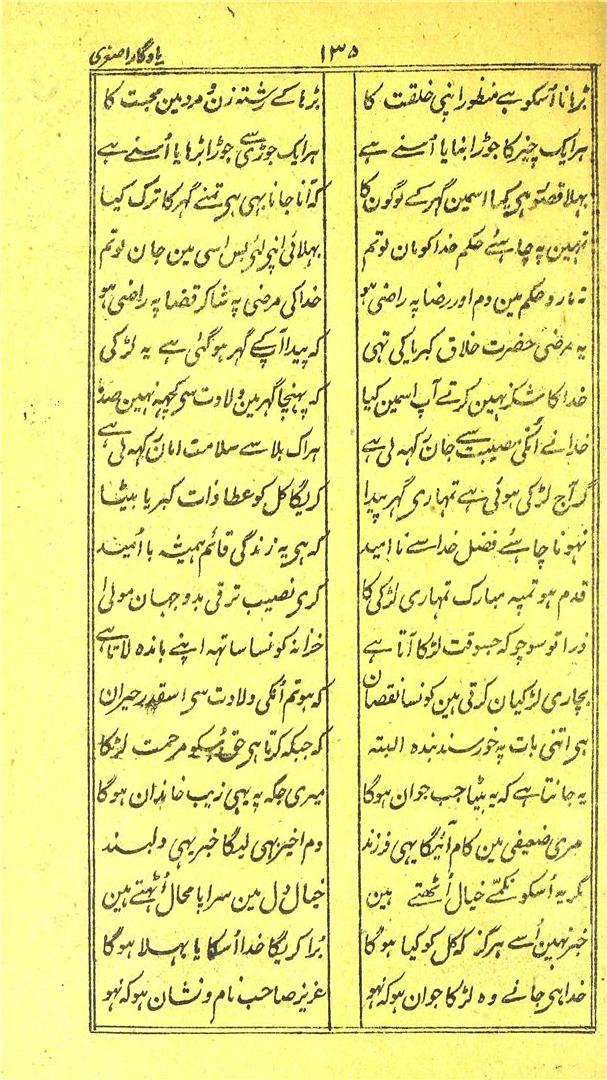 یادگار اصغری
۱۳۵
بڑہانا اُسکو ہے منظور اپنی خلقت کا بڑہا کے رشتہ زن و مرد مین محبت کا
ہر ایک چیز کا جوڑا بنایا اُسنے ہے ہر ایک جوڑی سے جوڑا بڑہایا اُسنے ہے
پہلا قصور ہی کیا اسمین گہر کے لوگون کا کہ آنا جانا یہی ہی تمنے گہر کا ترک کیا
تمہین یہ چاہئے حکم خدا کو مان لو تم بہلائی اپنی لئے بس اسی مین جان لو تم
نہ مارو حکم مین دم اور رضا پہ راضی ہو خدا کی مرضی پہ شاکر قضا پہ راضی ہو
یہ مرضی حضرت خلاق کبریا کی تہی کہ پیدا آپکے گہر ہو گئی ہے یہ لڑکی
خدا کا شکر نہین کرتے آپ اسمین کیا کہ پہنچا گہر مین ولادت سی کچہہ نہین صدمہ
خدا نے اُنکی مصیبت سے جان رکہہ لی ہے ہر اک بلا سے سلامت امان رکہہ لی ہے
گر آج لڑکی ہوئی ہے تمہاری گہر پیدا کریگا کل کو عطا ذات کبریا بیٹا
نہونا چاہئے فضل خدا سے نا امید کہ ہی یہ زندگی قائم ہمیشہ با اُمید
قدم ہو تمپہ مبارک تمہاری لڑکی کا کری نصیب ترقی بدو جہان مولیٰ
ذرا تو سوچو کہ جسوقت لڑکا آتا ہے خزانہ کونسا ساتہہ اپنے باندہ لاتا ہے
بچاری لڑکیان کرتی ہین کونسا نقصان کہ ہو تم اُنکی ولادت سی اسقدر حیران
ہی اتنی بات پہ خورسند بندہ البتہ کہ جبکہ کرتا ہی حق اُسکو مرحمت لڑکا
یہ جانتا ہے کہ یہ بیٹا جب جوان ہوگا میری جگہ پہ یہی زیب خاندان ہوگا
مری ضعیفی مین کام آئیگا یہی فرزند دم اخیر یہی لیگا خبر یہی دلبند
مگر یہ اُسکو نکمّے خیال اُٹھتے ہین خیال دل مین سراپا محال اُٹہتے ہین
خبر نہین اُسے ہرگز کہ کل کو کیا ہوگا بُرا کریگا خدا اُسکا یا بہلا ہوگا
خدا ہی جانے وہ لڑکا جوان ہو کہ نہو عزیز صاحب نام و نشان ہو کہ نہو